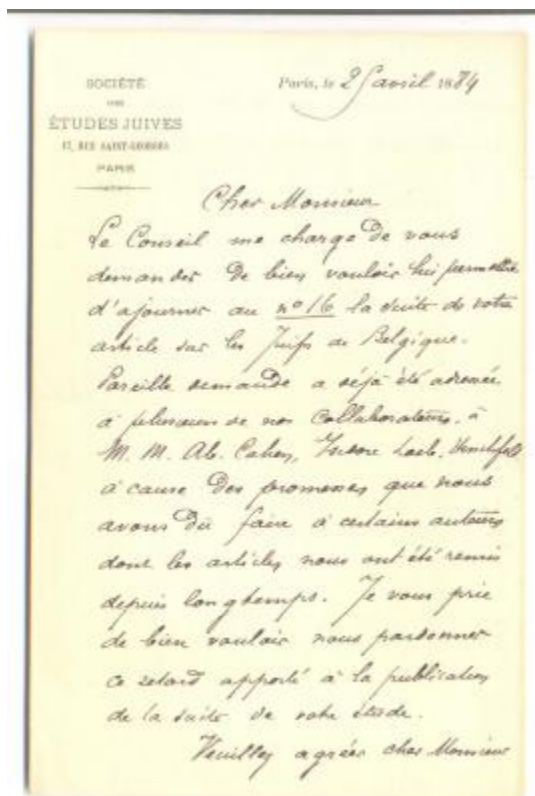 SOCIÉTÉ
DES
ÉTUDES JUIVES
17, RUE SAINT-GEORGES
PARIS
Paris, le 25 avril 1884
Cher Monsieur
Le Conseil me charge de vous
demander de bien vouloir lui permettre
d'ajourner au nº 16 la suite de votre
article sur les Juifs de Belgique.
Pareille demande a déjà été adressée
à plusieurs de nos collaborateurs, à
M. M. Ab. Cahen, Isidore Loeb, Hirschfeld
à cause des promesses que nous
avons dû faire à certains auteurs
dont les articles nous ont été remis
depuis longtemps. Je vous prie
de bien vouloir nous pardonner
ce retard apporté à la publication
de la suite de votre étude.
Veuillez agréer cher Monsieur